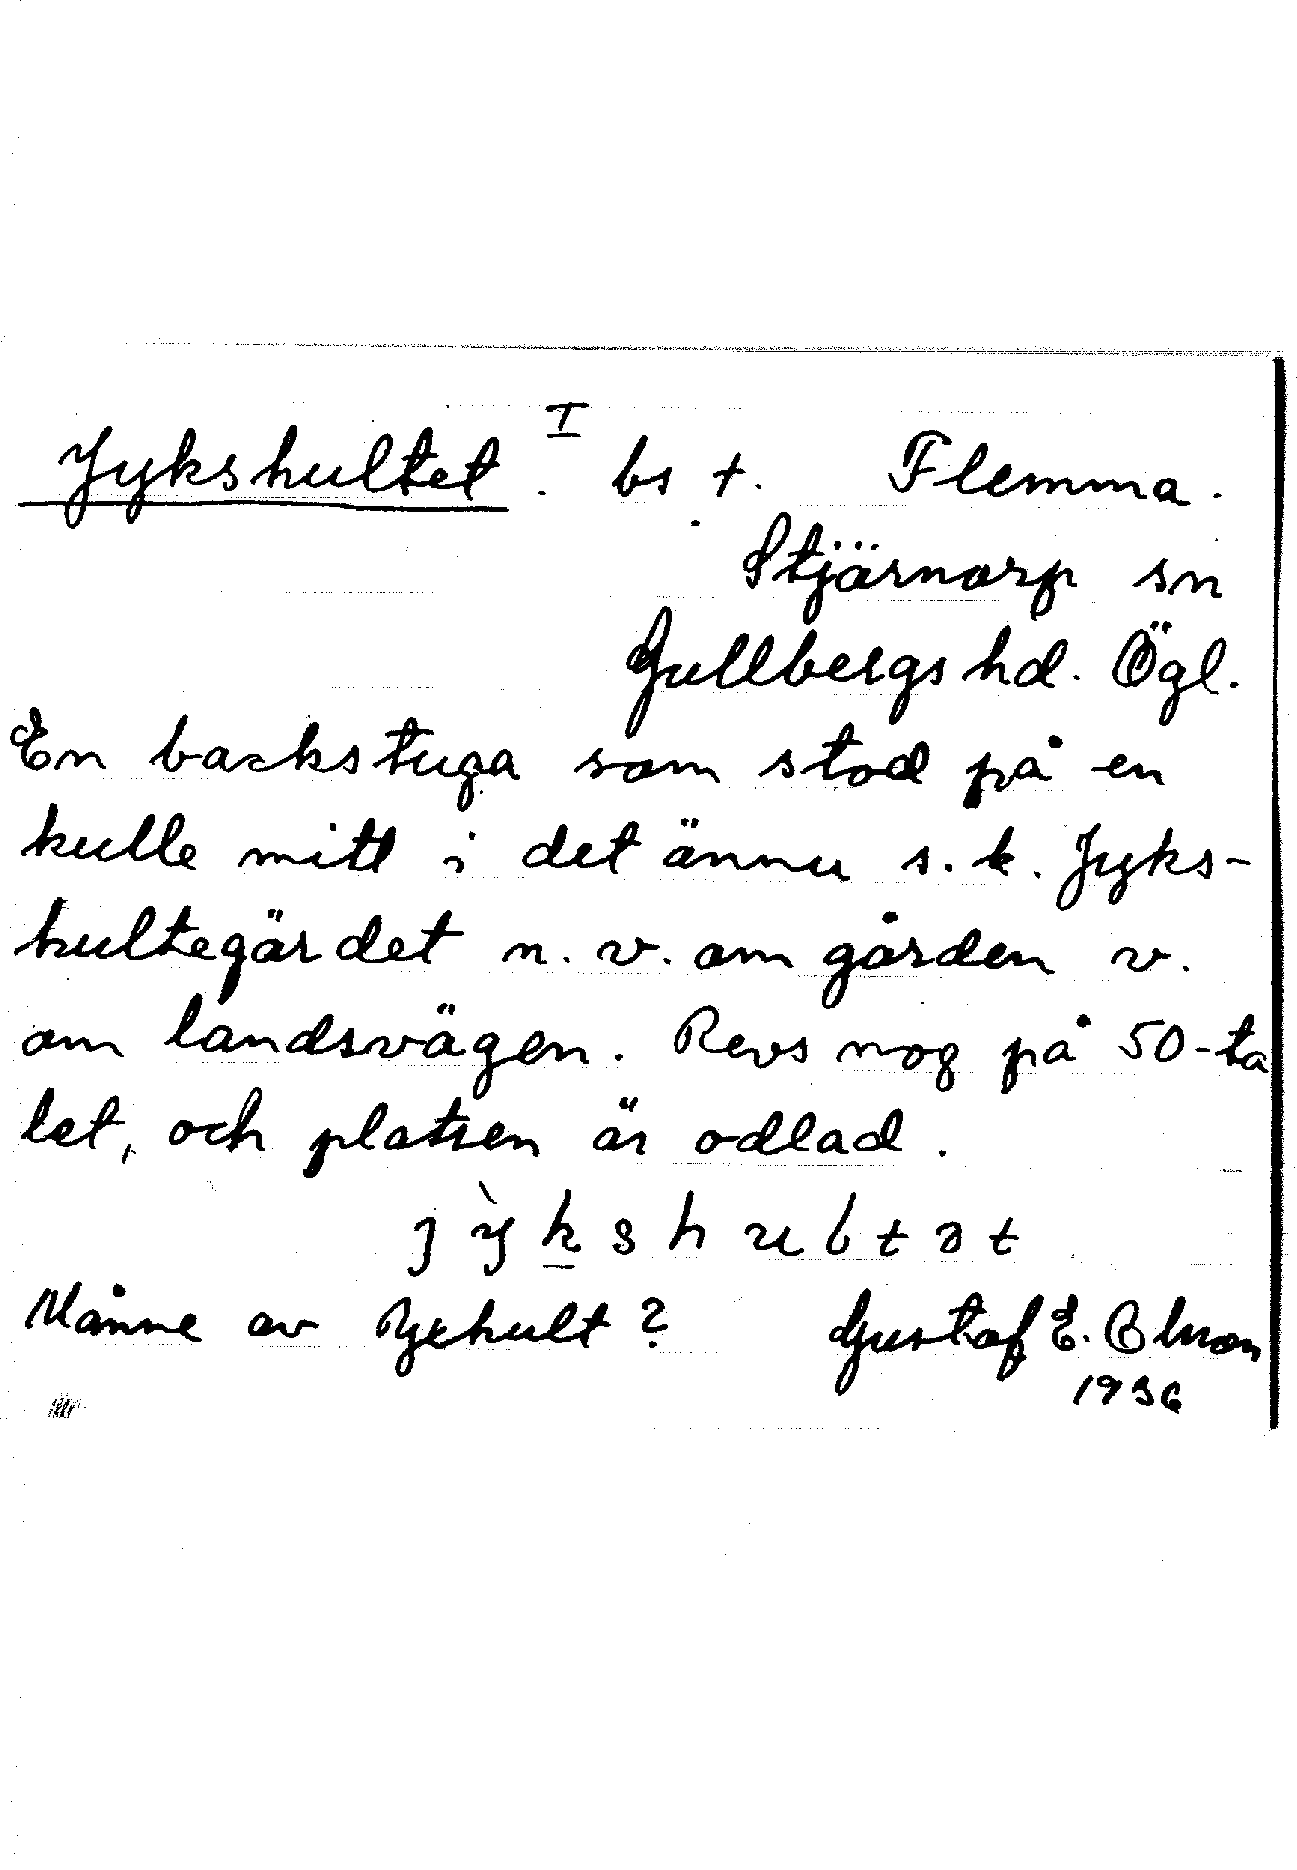 Jykshultet I. bs †. Flemma.
Stjärnorp sn
Gullbergs hd. Ögl.
En backstuga som stod på en
kulle mitt i det ännu s. k. Jyks-
hultegärdet n. v. om gården v.
om landsvägen. Revs nog på 50-ta
let, och platsen är odlad.
j ỳ k s h u l t ə t
Månne av Rykhult? Gustaf E.
1936